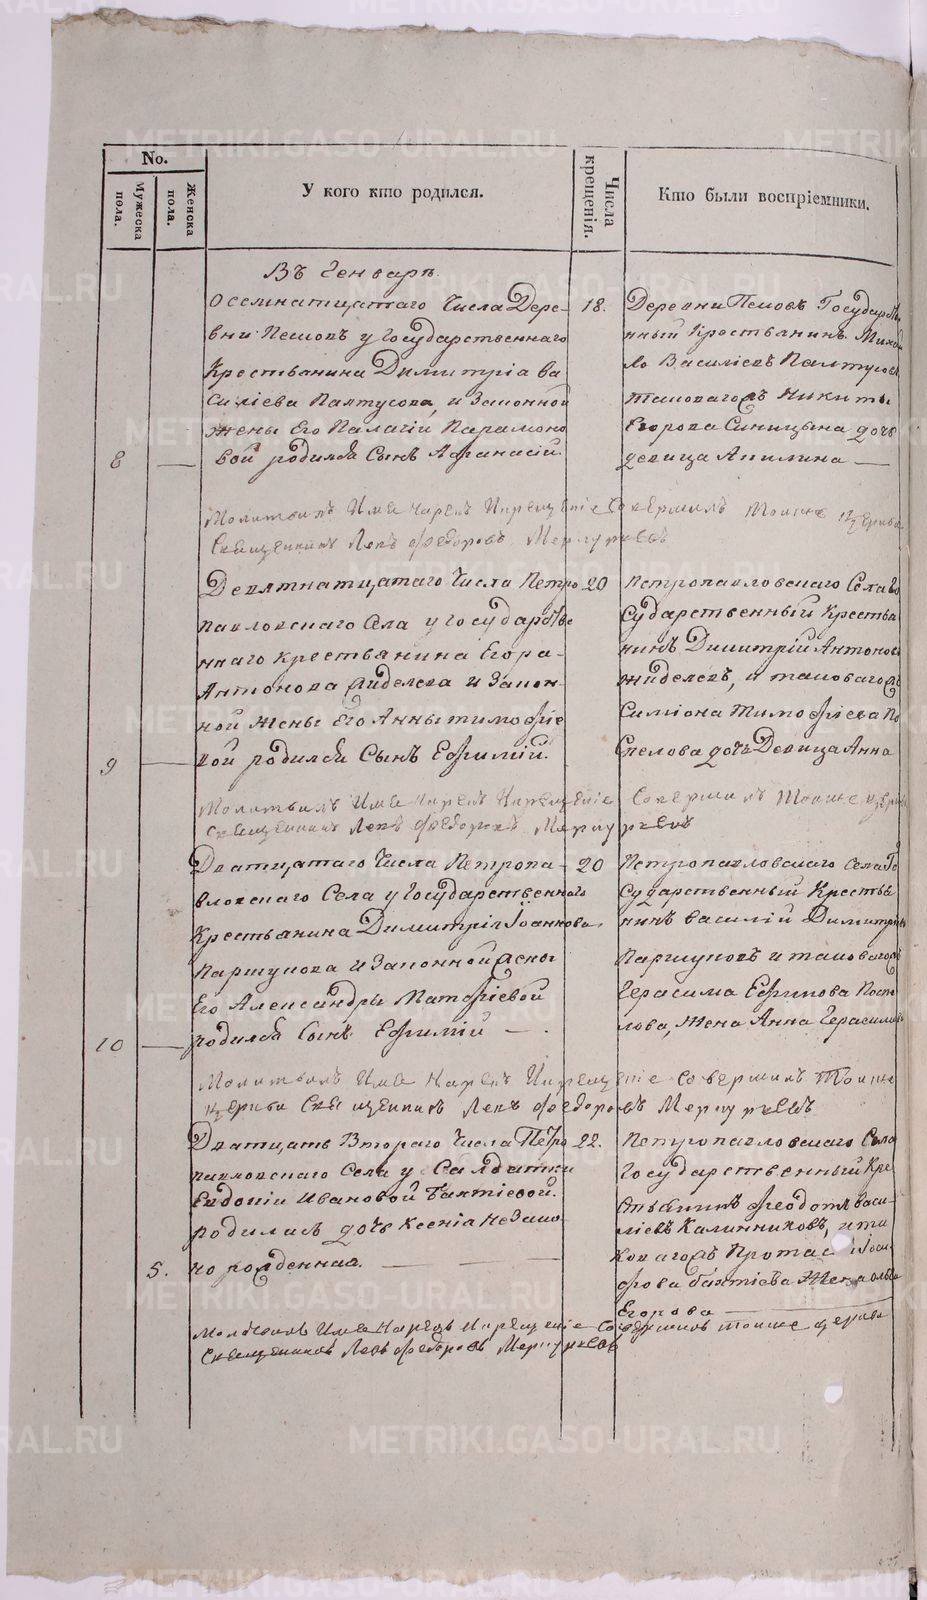 No.
Мужеска пола.
Женска пола.
У кого кто родился.
Числа крещенія.
Кто были воспріемники.
Въ Генварѣ
8
Осемнатцатаго Числа Дере-
вни Пешовъ у Государственнаго
Крестьянина Димитріа Ва
силіева Палтусова, и Законной
жены Его Палагіи Парамоно
вой родился Сынъ Афанасій.
18.
Деревни Государстве
нный Крестьянинъ Михай
ло Василіевъ Палтусовъ
таковагожъ Никиты
Егорова Синицына дочь
девица Акилина
Молитвилъ Имя нарекъ И крещеніе Совершилъ Тояже Церкви
Священникъ Левъ Федоровъ Меркурьевъ
9
Девятнатцатаго Числа Петро
павловскаго Села у государстве
ннаго крестьянина Егора
Антонова и Закон-
ной жены Его Анны тимофіе
вой родился Сынъ Ефимій.
20
Петропавловскаго Села Го
сударственный Крестья
нинъ Димитрій Антоновъ
и таковагожъ
Симіона Тимофіева По
спелова дочь Девица Анна
Молитвилъ Имя Нарекъ И крещеніе Совершилъ Тояже церкви
священникъ Левъ Федоровъ Меркурьевъ
10
Дватцатаго Числа Петропа-
вловскаго Села у Государственнаго
Крестьянина Димитріа Іоаннова
Паршукова и Законной жены
Его Александры Матфіевой
родился Сынъ Ефимій
20
Петропавловскаго Села Го
сударственный Крестья
нинъ Василій Димитріевъ
Паршуковъ и таковагожъ
Герасима Ефимова Пост
лова, Жена Анна Герасимова
Молитвилъ Имя Нарекъ И крещеніе Совершилъ Тояже
церкви Священникъ Левъ Федоровъ Меркурьевъ
5.
Дватцать Втораго Числа Петро
павловскаго Села у Салдатки
Евдокіи Ивановой Бахтіевой.
родилась дочь Ксенія незако
но рожденная.
22.
Петропавловскаго Села
Государственный Кре
стьянинъ Феодотъ Васи-
ліевъ Калинниковъ, и та
ковагожъ
Жена Ольга
Егорова
Молитвилъ Имя Нарекъ И крещеніе Совершилъ тояже церкви
Священникъ Левъ Федоровъ Меркурьевъ
METRIKI.GASO-URAL.RU